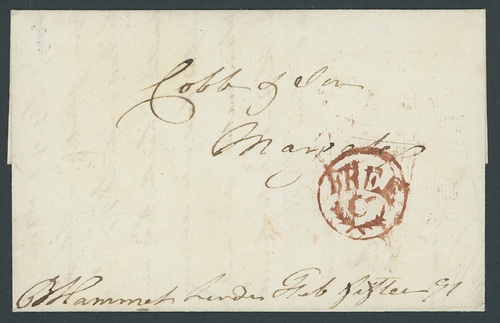 Cobb & Son
Margate
FREE
C
B Hammet London Feb fifteen 91